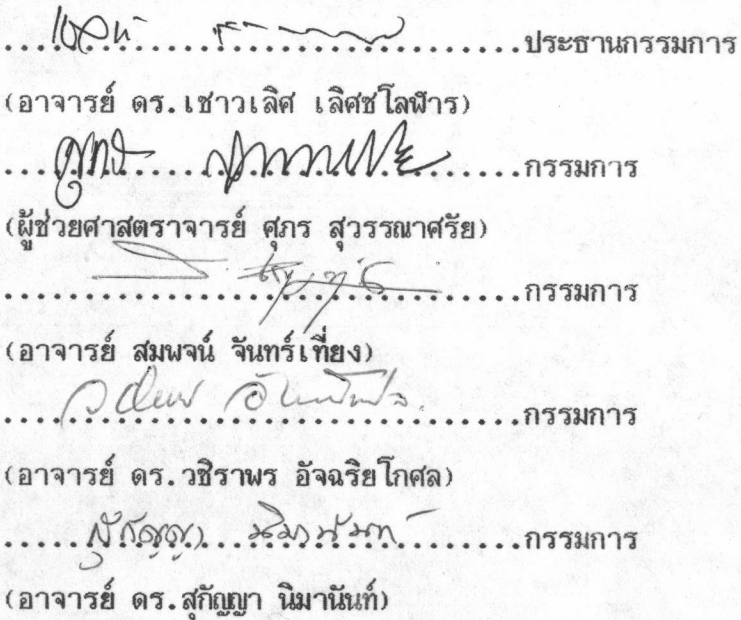 ........................................ประธานกรรมการ
(อาจารย์ ดร.เชาวเลิศ เลิศชโลฬาร)
........................................กรรมการ
(ผู้ช่วยศาสตราจารย์ ศุภร สุวรรณาศรัย)
........................................กรรมการ
(อาจารย์ สมพจน์ จันทร์เที่ยง)
........................................กรรมการ
(อาจารย์ ดร.วชิราพร อัจฉริยโกศล)
สุกัญญา นิมานันท์ กรรมการ
(อาจารย์ ดร.สุกัญญา นิมานันท์)